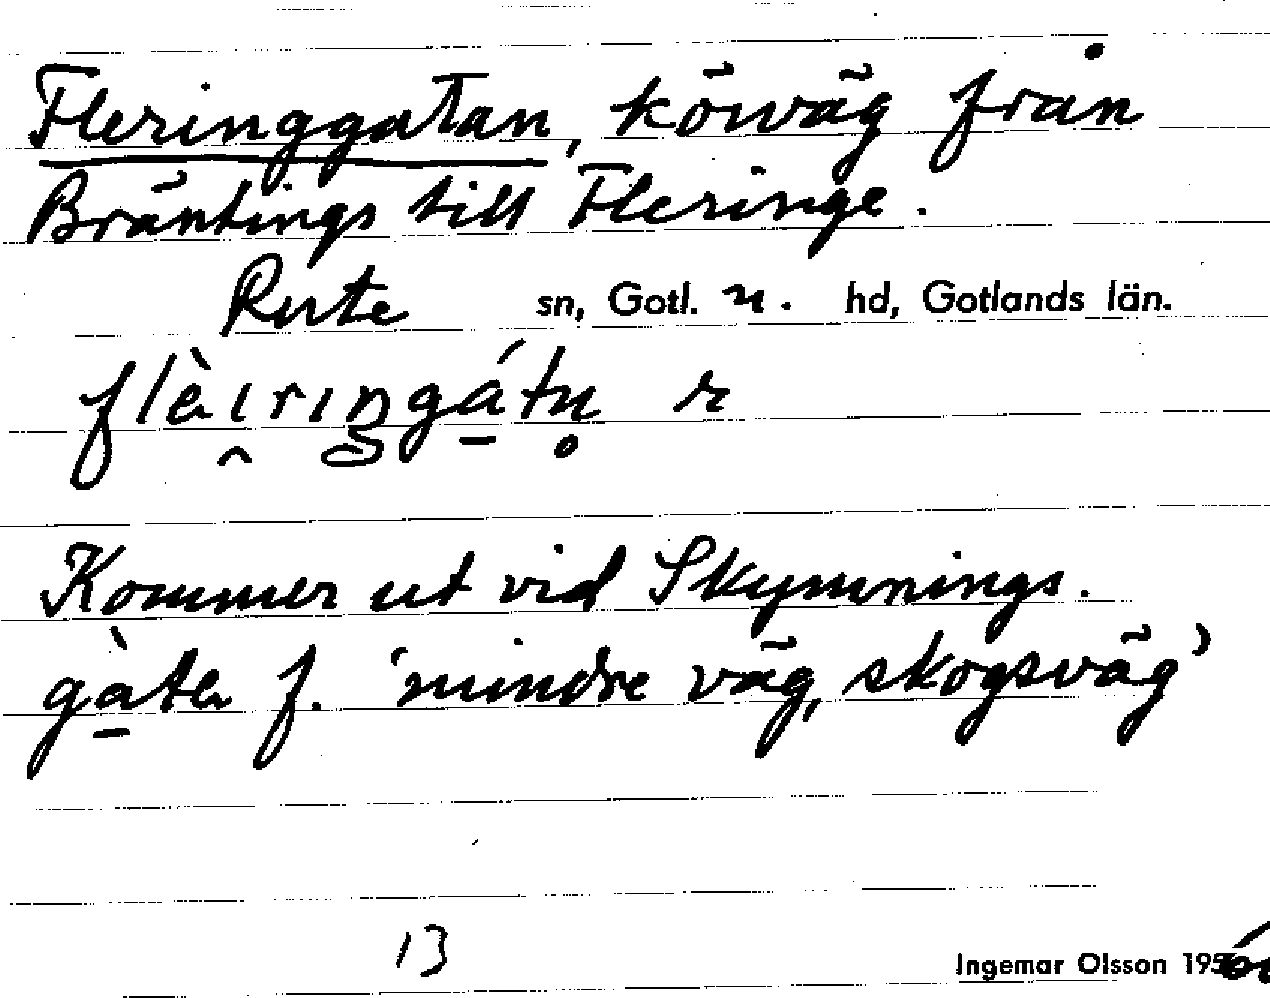 Fleringgatan, körväg från
Bräntings till Fleringe.
Rute sn, Gotl. n. hd, Gotlands län.
flèi̯riŋgá̱tn̥ r
Kommer ut vid Skymnings.
gà̱ta f. 'mindre väg, skogsväg'
13
Ingemar Olsson